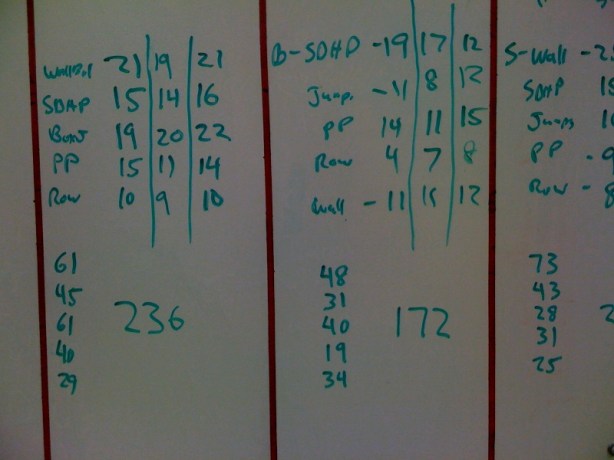 21 19 21
SDHP 15 14 16
19 20 22
PP 15 11 14
Row 10 9 10
61
45
61
40
29
236
B-SDHP -19 17 12
Jump -11 8 12
PP 14 11 15
Row 4 7 8
Wall -11 11 12
48
31
40
19
34
172
S-Wall -2
SDHP
Jumps
PP - 9
Row - 8
73
43
28
31
25